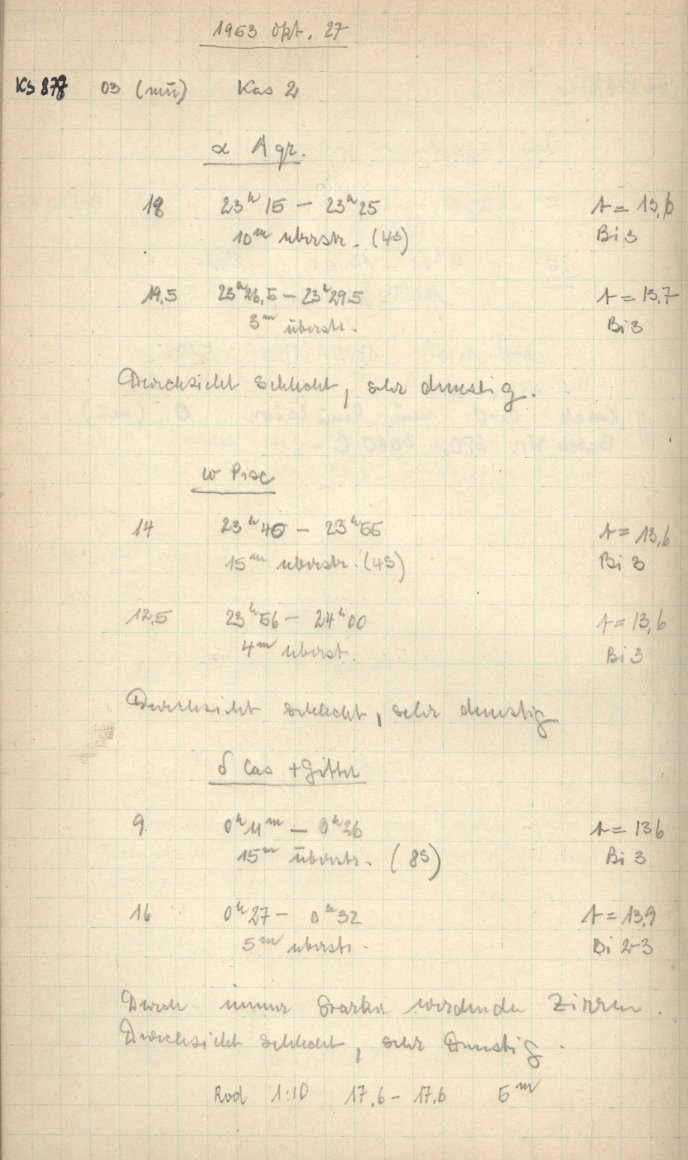 1963 Okt. 27
KS 878 03 (mü) Kas 2
α Aqr.
18 23ʰ15 – 23ʰ25 t = 13,6
10ᵐ überstr. (4S) Bi 3
19,5 23ʰ26,5 – 23ʰ29.5 t = 13,7
3ᵐ überstr. Bi 3
Durchsicht schlecht, sehr dunstig.
ω Pisc
14 23ʰ40 – 23ʰ55 t = 13,6
15ᵐ überstr. (4S) Bi 3
12,5 23ʰ56 – 24ʰ00 t = 13,6
4ᵐ überst. Bi 3
Durchsicht schlecht, sehr dunstig
δ Cas + Gitter
9 0ʰ11ᵐ – 0ʰ26 t = 13 6
15ᵐ überstr. (8S) Bi 3
16 0ʰ27 – 0ʰ32 t = 13,9
5ᵐ überstr. Bi 2-3
Durch immer starker werdende Zirren.
Durchsicht schlecht, sehr Dunstig.
Rod 1:10 17,6 – 17,6 5ᵐ